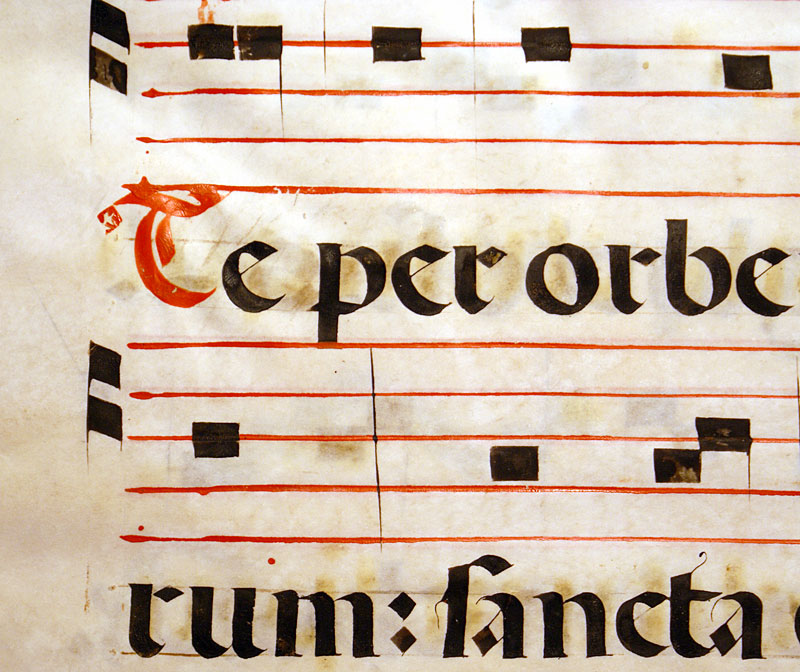 Te per orbe
rum: sancta